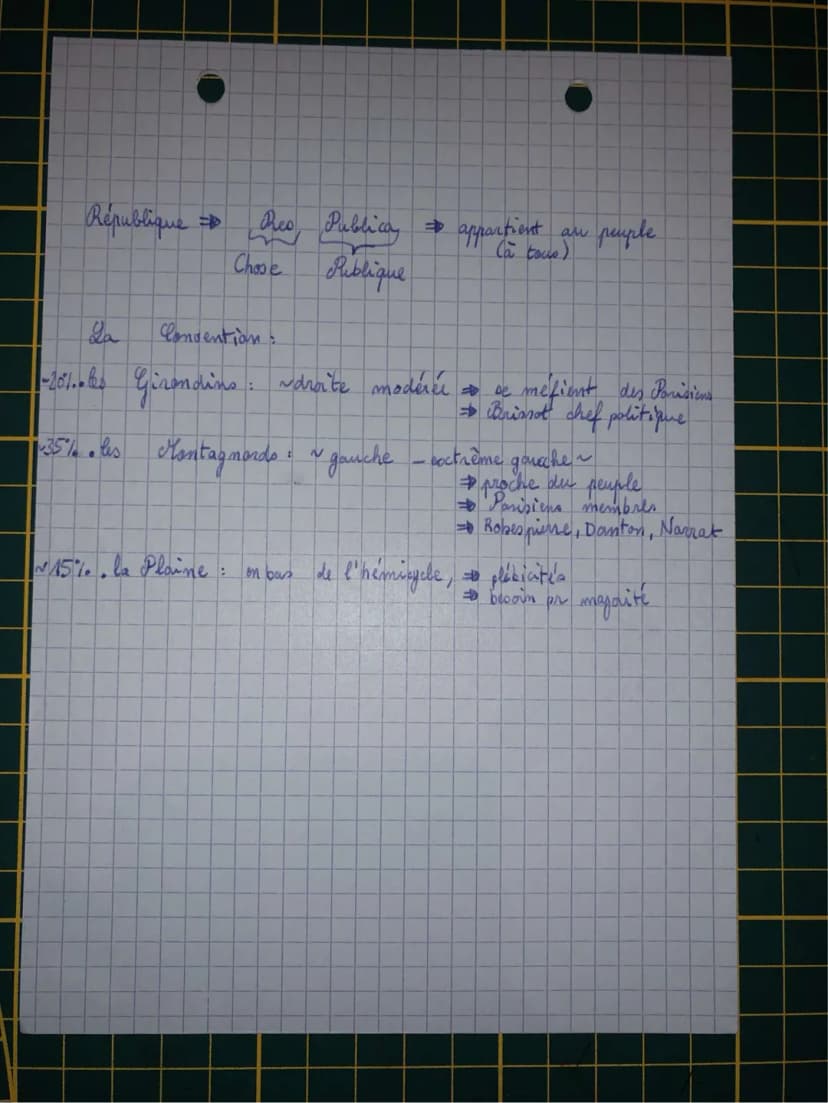 République ⇒ Res Publica ⇒ appartient au peuple
(à tous)
Chose Publique
La Convention :
~20% . les Girondins : ~droite modérée ⇒ se méfient des Parisiens
⇒ Brissot chef politique
~35% . les Montagnards : ~ gauche – extrême gauche ~
⇒ proche du peuple
⇒ Parisiens membres
⇒ Robespierre, Danton, Marrat
~15% . la Plaine : en bas de l'hémicycle, ⇒
⇒ besoin pr majorité